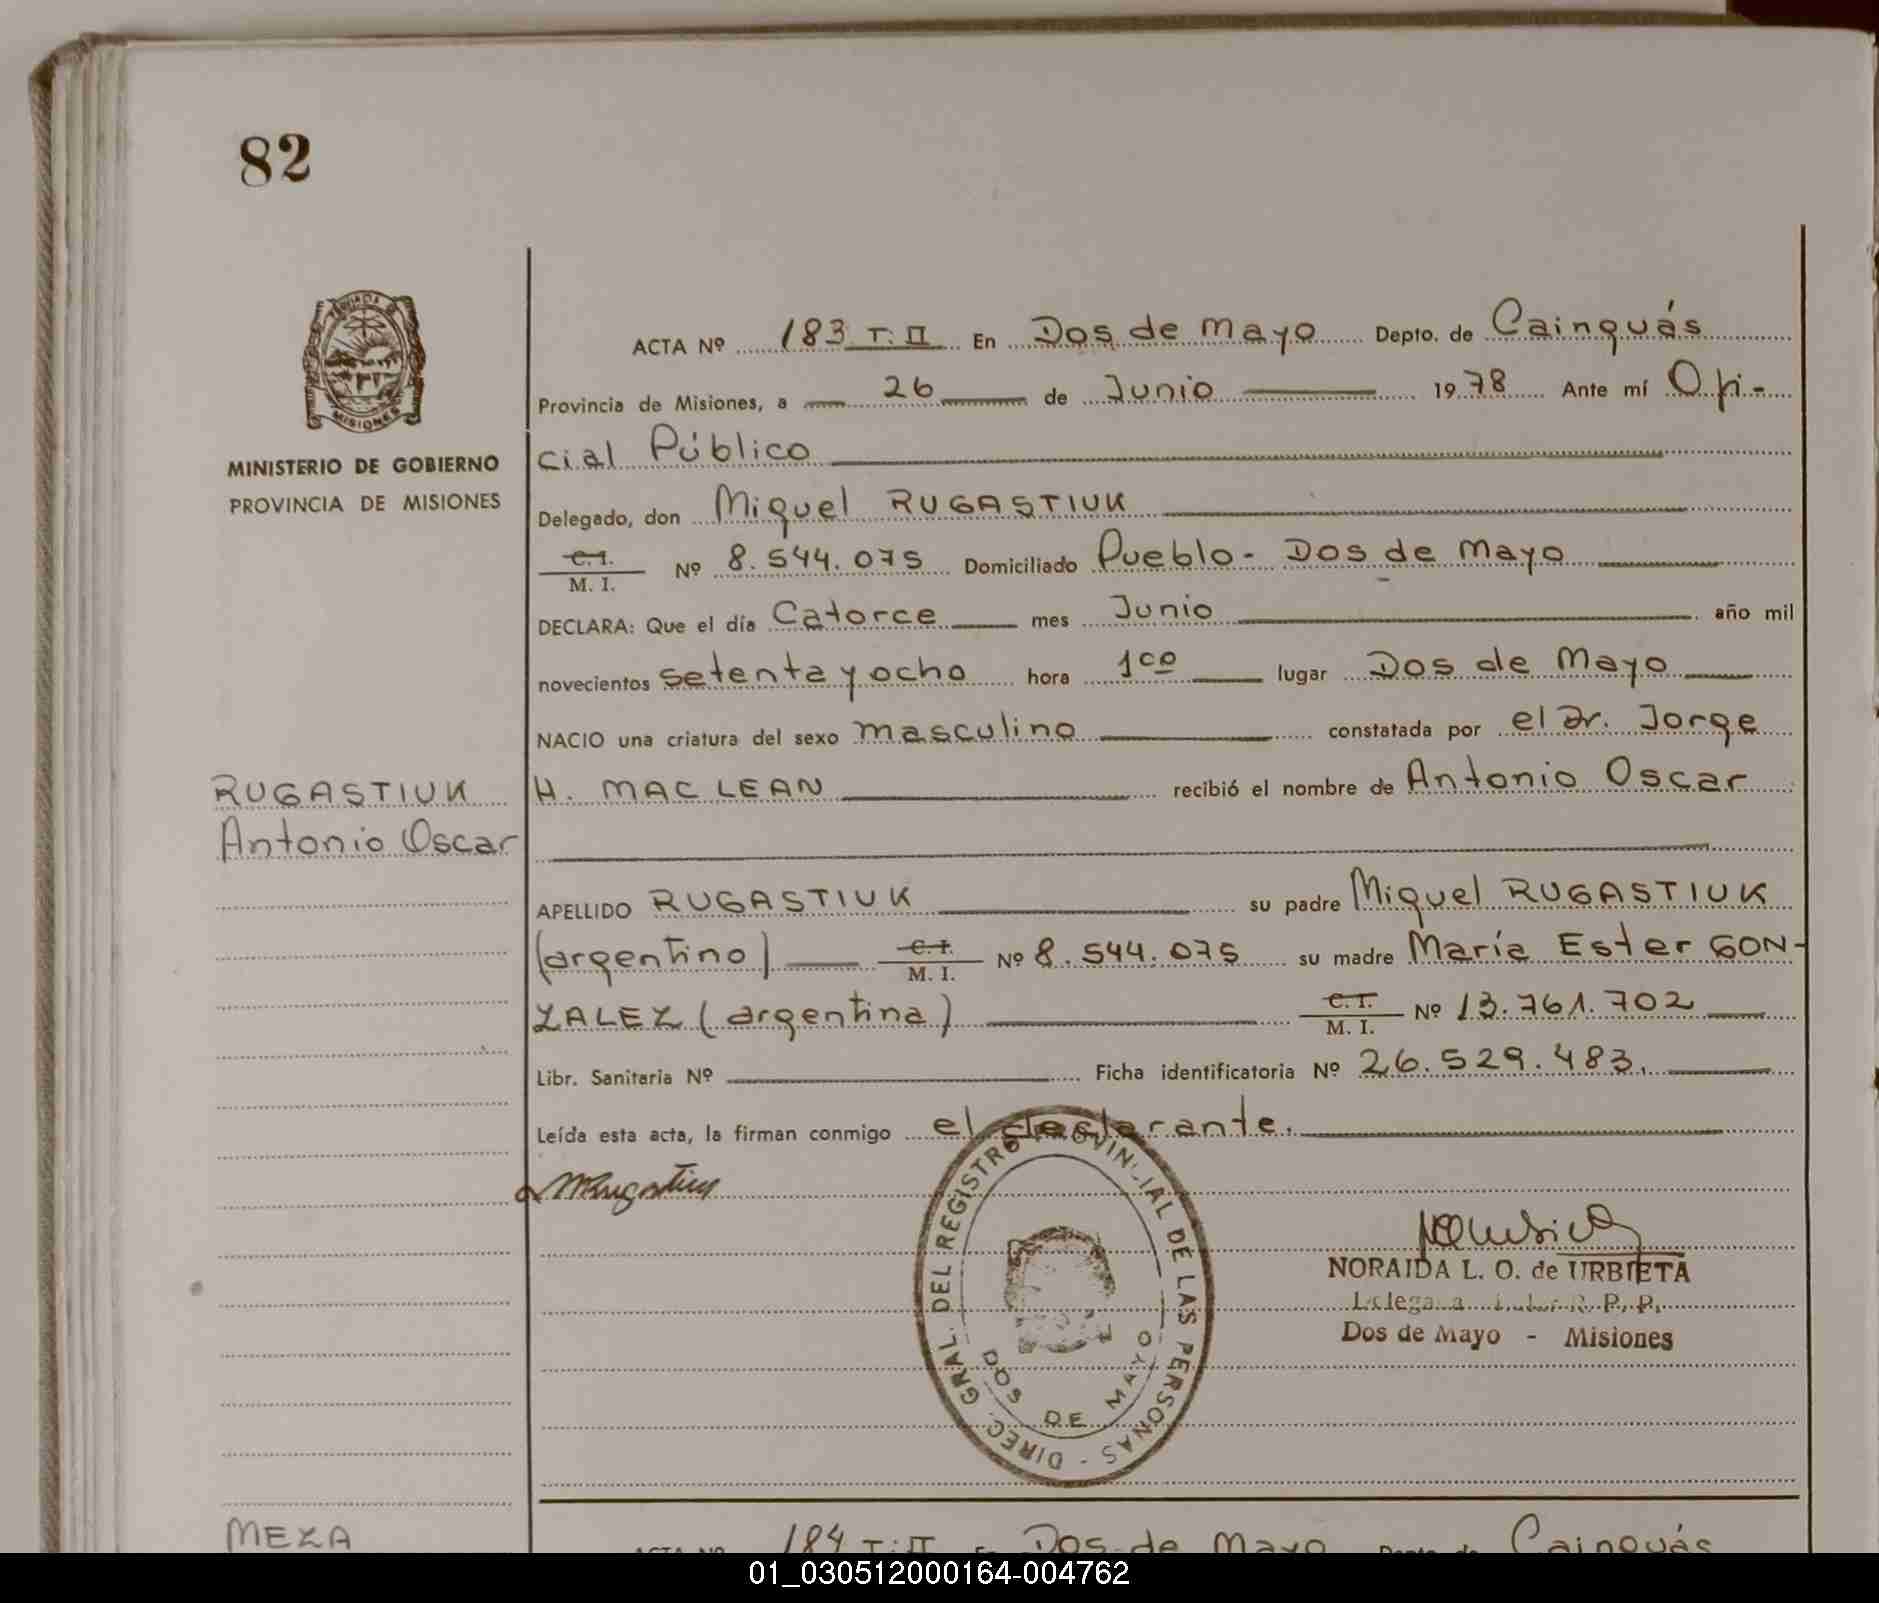 82
PROVINCIA DE
MISIONES
MINISTERIO DE GOBIERNO
PROVINCIA DE MISIONES
RUGASTIUK
Antonio Oscar
ACTA Nº 183 T. II En Dos de Mayo Depto. de Cainguás
Provincia de Misiones, a 26 de Junio 1978 Ante mí Ofi-
cial Público
Delegado, don Miguel RUGASTIUK
C. I.
M. I. Nº 8.544.075 Domiciliado Pueblo - Dos de Mayo
DECLARA: Que el día Catorce mes Junio año mil
novecientos setenta y ocho hora 1co lugar Dos de Mayo
NACIO una criatura del sexo masculino constatada por el Dr. Jorge
H. MAC LEAN recibió el nombre de Antonio Oscar
APELLIDO RUGASTIUK su padre Miguel RUGASTIUK
(argentino) C. I. M. I. Nº 8.544.075 su madre María Ester GON-
ZALEZ (argentina) C. I. M. I. Nº 13.761.702
Libr. Sanitaria Nº Ficha identificatoria Nº 26.529.483.
Leída esta acta, la firman conmigo el declarante.
MRugastiuk
DIREC. GRAL. DEL REGISTRO PROVINCIAL DE LAS PERSONAS -
DOS DE MAYO
NORAIDA L. O. de URBIETA
R. P. P.
Dos de Mayo - Misiones
MEZA
ACTA Nº 184 T. II En Dos de Mayo Depto. de Cainguás
01_030512000164-004762